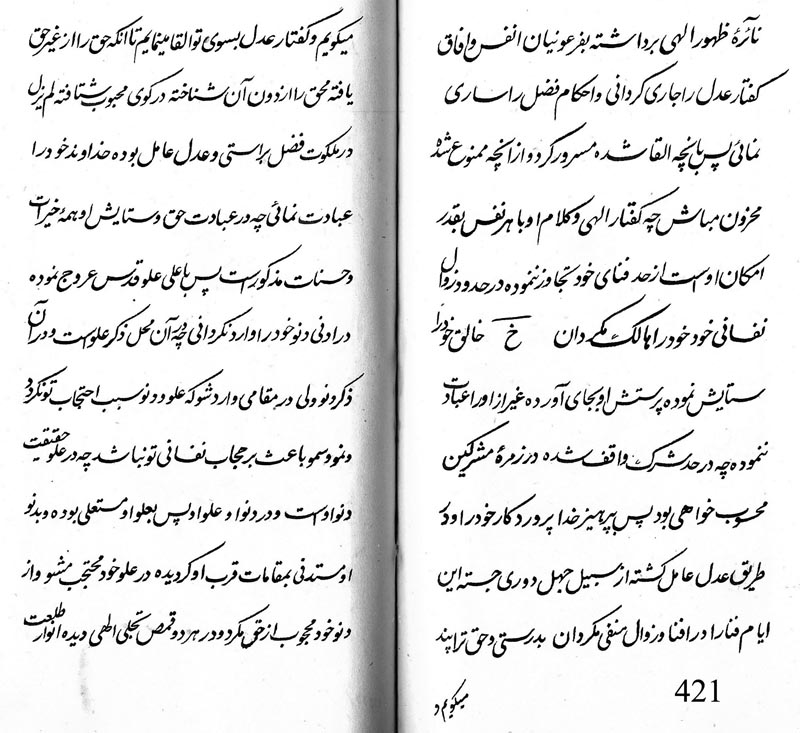 نآرهٔ ظهور الهی برداشته بفرعونیان انفس و افاق
کفتار عدل را جاری کردانی و احکام فضل را ساری
نمائی پس بانچه القا شده مسرور کرد و از انچه ممنوع شدهٔ
محزون مباش چه کفتار الهی و کلام او با هر نفس بقدر
امکان اوست از حد فنای خود تجاوز ننموده در حدود زوال
نفسانی خود خود را هالک مکردان خ خالق خود را
ستایش نموده پرستش او بجای آورده غیر از او را عبادت
ننموده چه در حد شرک واقف شده در زمرهٔ مشرکین
محسوب خواهی بود پس بپرهیز خدا پروردکار خود را و در
طریق عدل عامل کشته از سبیل جهل دوری جسته این
ایام فنا را در افنا و زوال منفی مکردان بدرستی و حق ترا پند
میکویم و
421
میکویم و کفتار عدل بسوی تو القا مینمایم تا انکه حق را از غیر حق
یافته محق را از دون آن شناخته در کوی محبوب شتافته لم یزل
در ملکوت فضل براستی و عدل عامل بوده خداوند خود را
عبادت نمائی چه در عبادت حق و ستایش او همهٔ خیرات
و حسنات مذکور است پس با علی علو قدس عروج نموده
در ادنی دنو خود را وارد نکردانی چه در آن محل ذکر علو است و در آن
ذکر دنو ولی در مقامی وارد شو که علو و دنو سبب احتجاب تو نکردد
و نمو و سمو باعث بر حجاب نفسانی تو نباشد چه در علو حقیقت
دنو اوست و در دنو او علو او پس بعلو او مستعلی بوده و بدنو
او مستدنی بمقامات قرب او کردیده در علو خود محتجب مشو و از
دنو خود محجوب از حق مکرد و در هر دو قمص تجلی الهی دیده انوار طلعت